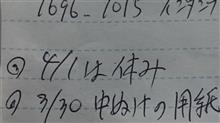 1696-1015
③ 4/1は休み
④ 3/30 中ぬけの用紙